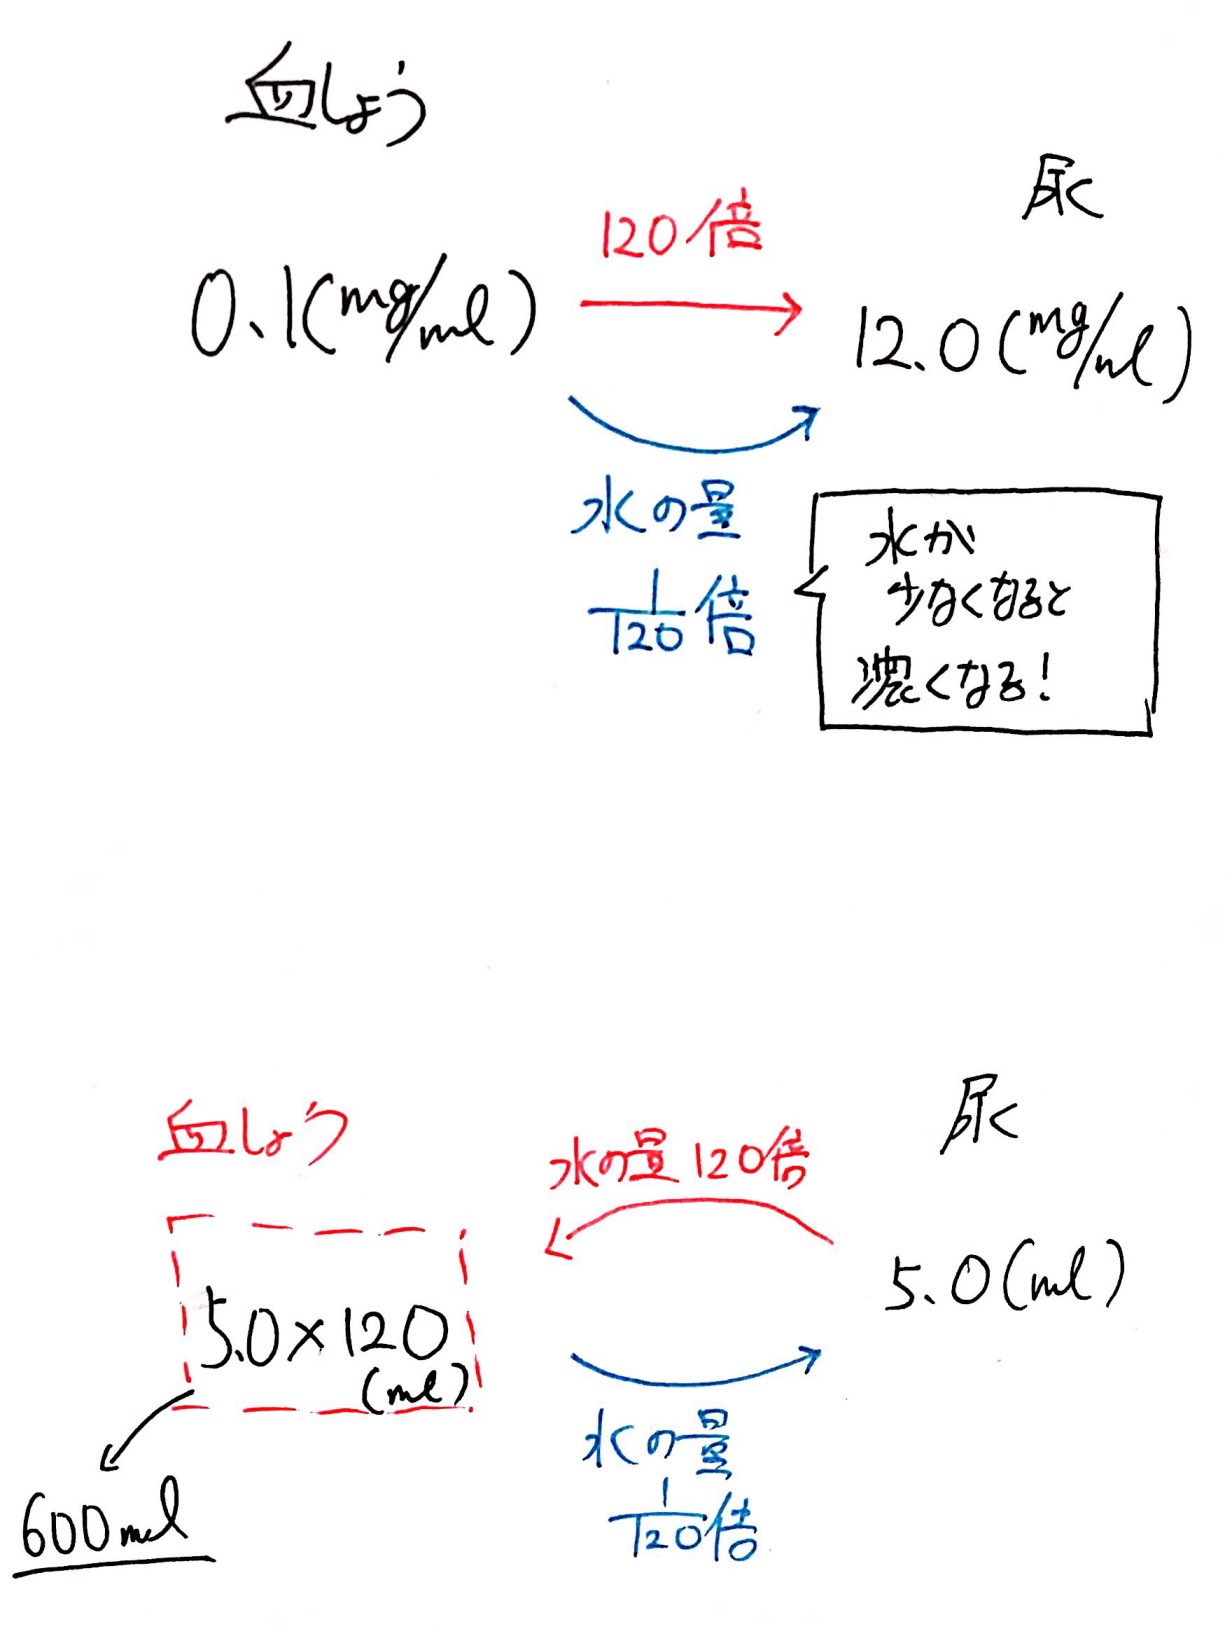 血しょう
尿
120倍
0.1(mg/ml)
12.0(mg/ml)
水の量
1/120倍
水が
少なくなると
濃くなる!
血しょう
尿
水の量120倍
5.0(ml)
5.0×120
(ml)
水の量
1/120倍
600ml